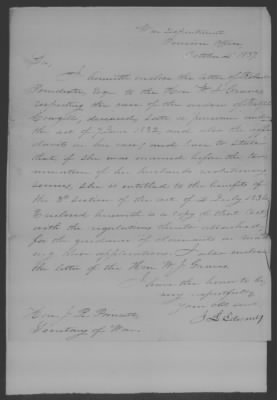 War Department
Pension Office
October 1837
Sir,
I herewith enclose the letter of
Poindexter, Esqr to the Hon. W. J. Graves
respecting the case of the widow of
Cowgill, deceased, late a pensioner under
the act of 7 June 1832, and also the
davits in her case, and have to state
that if she was married before the ter-
mination of her husband's revolutionary
service, she is entitled to the benefits of
the 3d section of the act of 4 July 1836
Enclosed herewith is a copy of that (act)
with the regulations thereto attached
for the guidance of claimants in mak-
ing their applications. I also enclose
the letter of the Hon. W. J. Graves.
I have the honor to be
very respectfully
your obt. servt.
J. L. Edwards
Hon. J. R. Poinsett
Secretary of War.